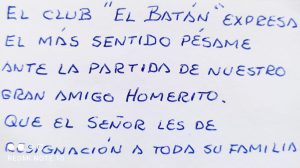 EL CLUB "EL BATÁN" EXPRESA
EL MÁS SENTIDO PÉSAME
ANTE LA PARTIDA DE NUESTRO
GRAN AMIGO HOMERITO.
QUE EL SEÑOR LES DE
COSIGNACIÓN A TODA SU FAMILIA
REDMI NOTE 10